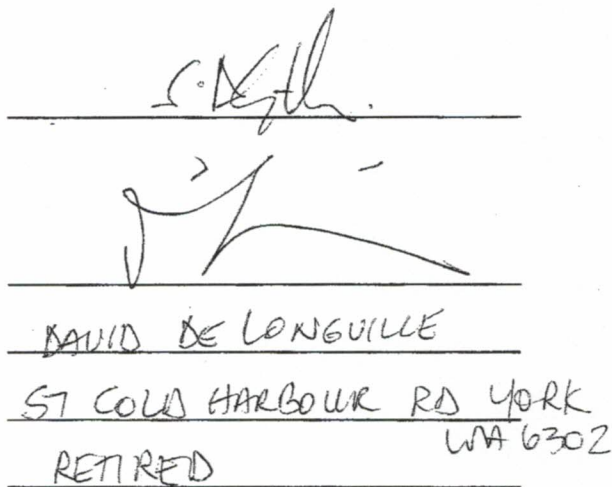 DAVID DE LONGUILLE
57 COLD HARBOUR RD YORK
WA 6302
RETIRED